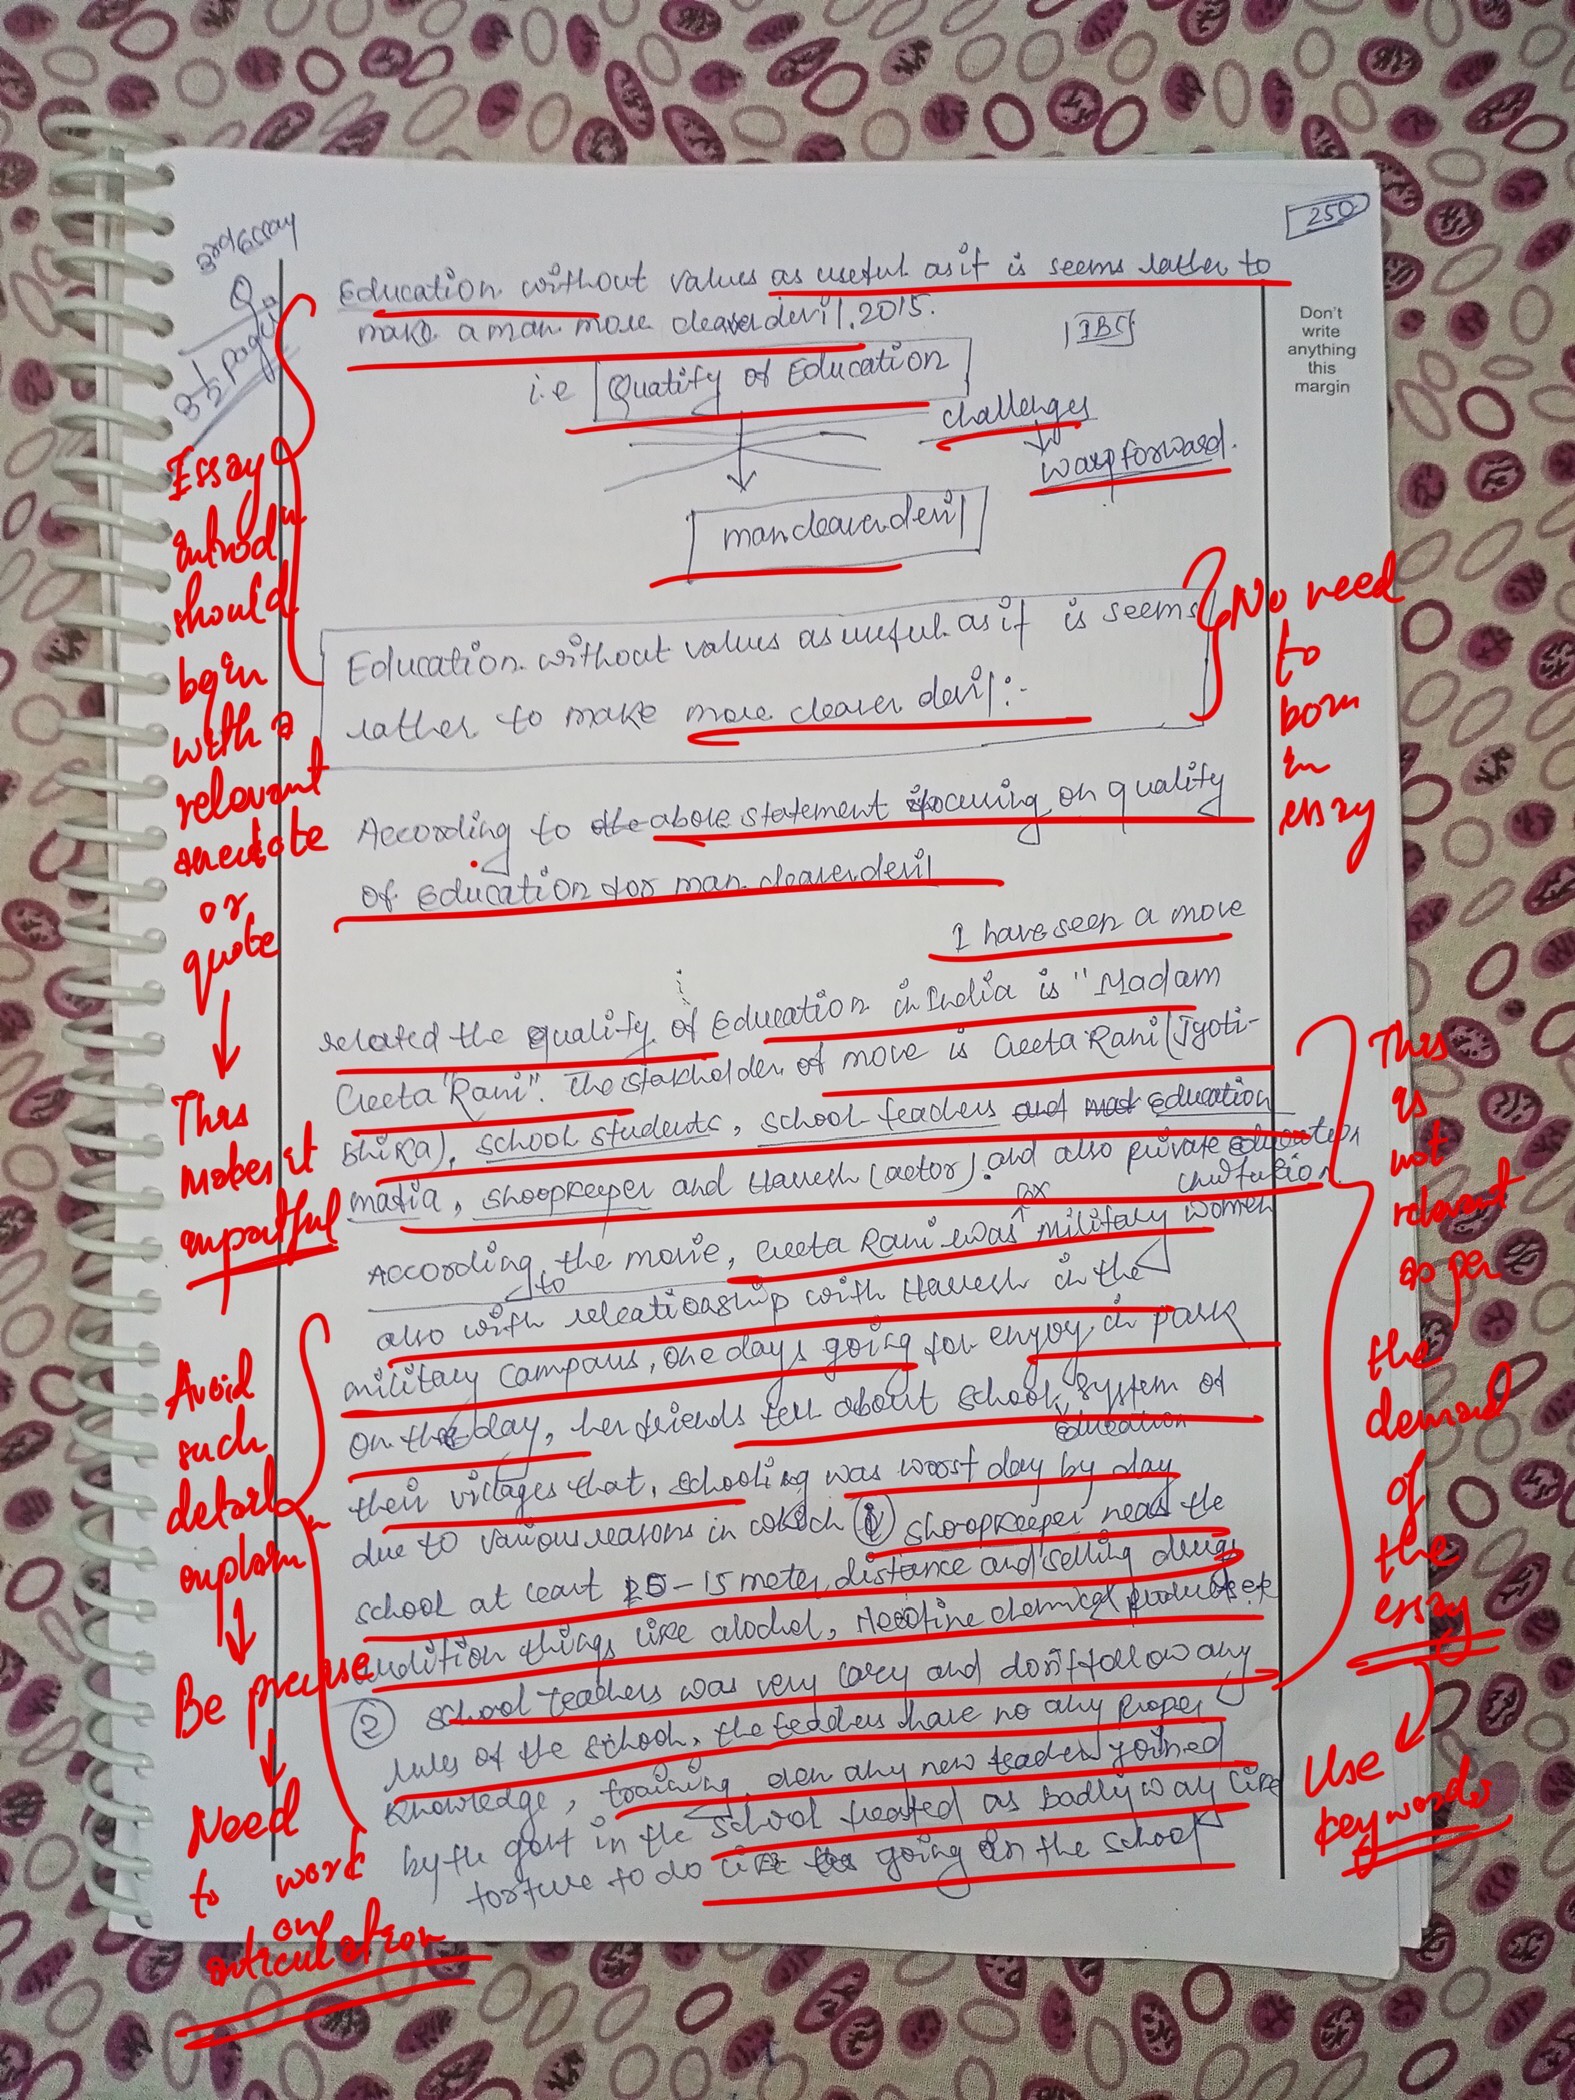 250
3rd Essay
Q.
3 1/2 pages
Education without values as useful as it is seems rather to
make a man more cleaver devil. 2015.
i.e Quality of Education
challenges
way forward.
man cleaver devil
Don't
write
anything
this
margin
Education without values as useful as it is seems
rather to make more cleaver devil:-
No need
to
born
in
essay
Essay
introdn
should
begin
with a
relevant
anecdote
or
quote
This
makes it
impactful
According to above statement focusing on quality
of Education for man cleaver devil
I have seen a move
related the quality of Education in India is "Madam
Geeta Rani". The stakholder of move is Geeta Rani (Jyoti-
shika), school students, school teachers and education
matia, shoopkeeper and Haresh (actor). and also private education
institution
According to the movie, Geeta Rani was ex military women
also with releationship with Haresh in the
military campus, one days going for enjoy in park
on the day, her friends tell about school education system of
their villages that, schooling was worst day by day
due to various reasons in which (1) shoopkeeper near the
school at least 10-15 meter distance and selling drugs
audition things like alochol, Necotine chemical products etc
(2) school teachers was very lazy and don't follow any
rules of the school, the teachers have no any proper
knowledge, training, even any new teacher joined
by the govt in the school treated as badly way like
torture to do like going in the school
This
is
not
relevant
as per
the
demand
of
the
essay
Use
keywords
Avoid
such
detail
explain
Be precise
Need
to work
on
articulation